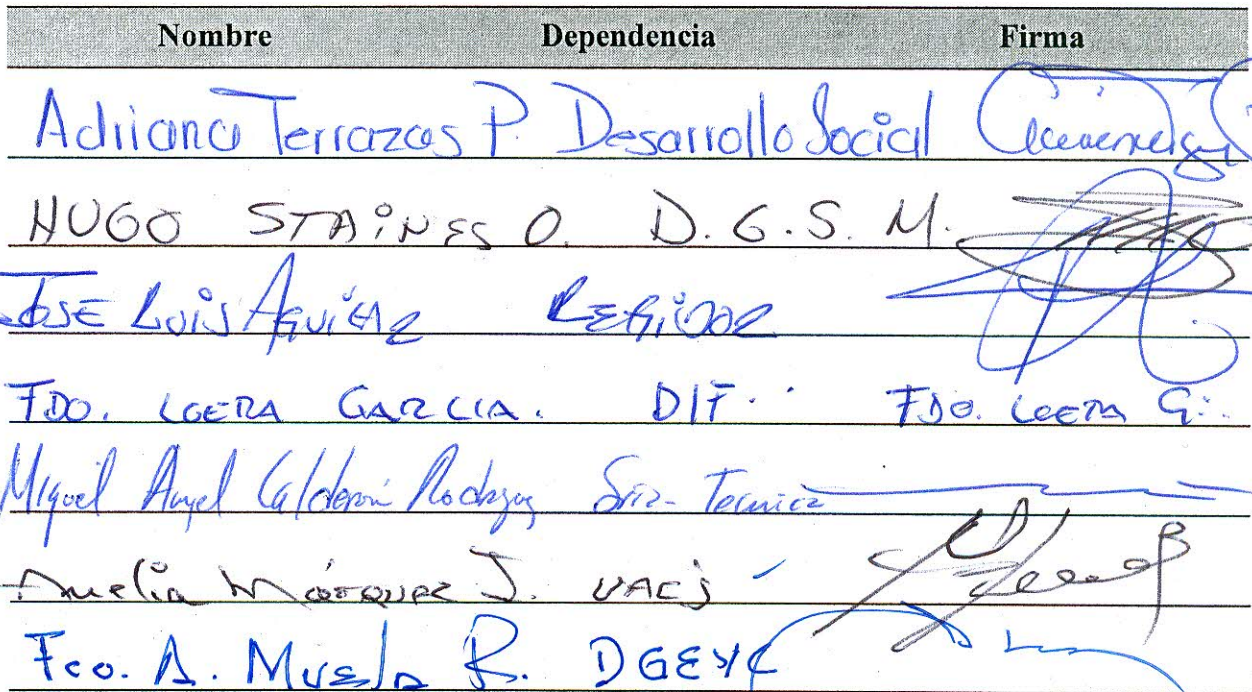 Nombre Dependencia Firma
Adriana Terrazas P. Desarrollo Social
HUGO STAINES O. D.G.S.M.
JOSE LUIS AGUILAR REGIDOR
FDO. LOERA GARCIA. DIF. FDO. LOERA G.
Miguel Angel Calderón Rodríguez Sria. Tecnica
Amelia Márquez J. UACJ
Fco. A. Muela R. DGEYC